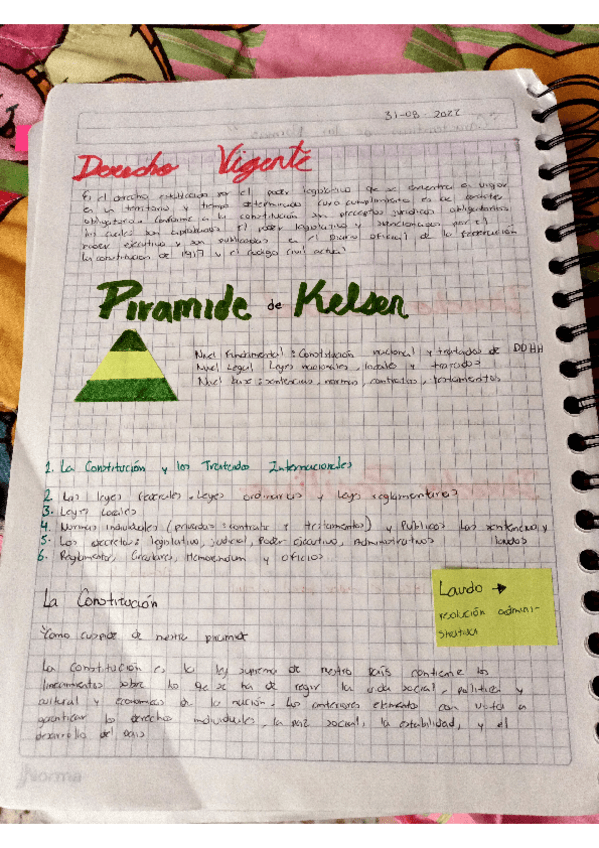 31-08-2022
Derecho Vigente
Es el derecho establecido por el poder legislativo que se encuentra en vigor
en un territorio y tiempo determinado cuyo cumplimiento es de carácter
obligatorio. Conforme a la constitución son preceptos jurídicos obligatorios
los cuales son aprobados el poder legislativo y sancionados por el
poder ejecutivo y son publicados en el Diario oficial de la federación
la constitucion de 1917 y el codigo civil actual
Piramide de Kelsen
Nivel Fundamental: Constitución nacional y tratados de DDHH
Nivel Legal Leyes nacionales, locales y tratados
Nivel base: sentencias, normas, contratos, testamentos
1. La Constitución y los Tratados Internacionales
2. Las leyes federales. Leyes ordinarias y Leyes reglamentarias
3. Leyes Locales
4. Normas individuales (privadas: contratos y testamentos) y Publicos las sentencias y
5. Los decretos: legislativo, judicial, Poder ejecutivo, Administrativos laudos
6. Reglamentos, Circulares, Memorandum y oficios
Laudo →
resolución admini-
strativa
La Constitución
Como cuspide de nuestra piramide
La constitución es la ley suprema de nuestro país contiene los
lineamientos sobre los que se ha de regir la vida social, política y
cultural y economica de la nación. Los anteriores elementos con vista a
garantizar los derechos individuales, la paz social, la estabilidad, y el
desarrollo del país
Norma